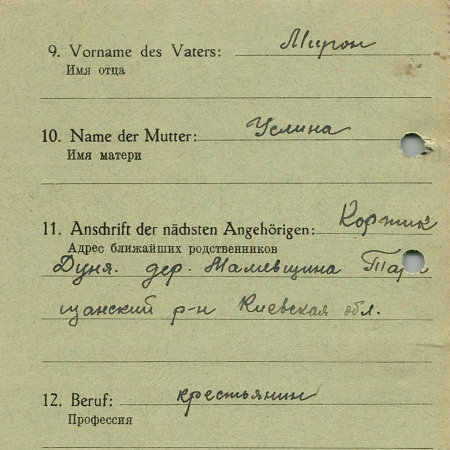 9. Vorname des Vaters: Мирон
Имя отца
10. Name der Mutter: Услина
Имя матери
11. Anschrift der nächsten Angehörigen: Коржик
Адрес ближайших родственников
Дуня. дер. Малевщина Тара
щанский р-н Киевская обл.
12. Beruf: крестьянин
Профессия